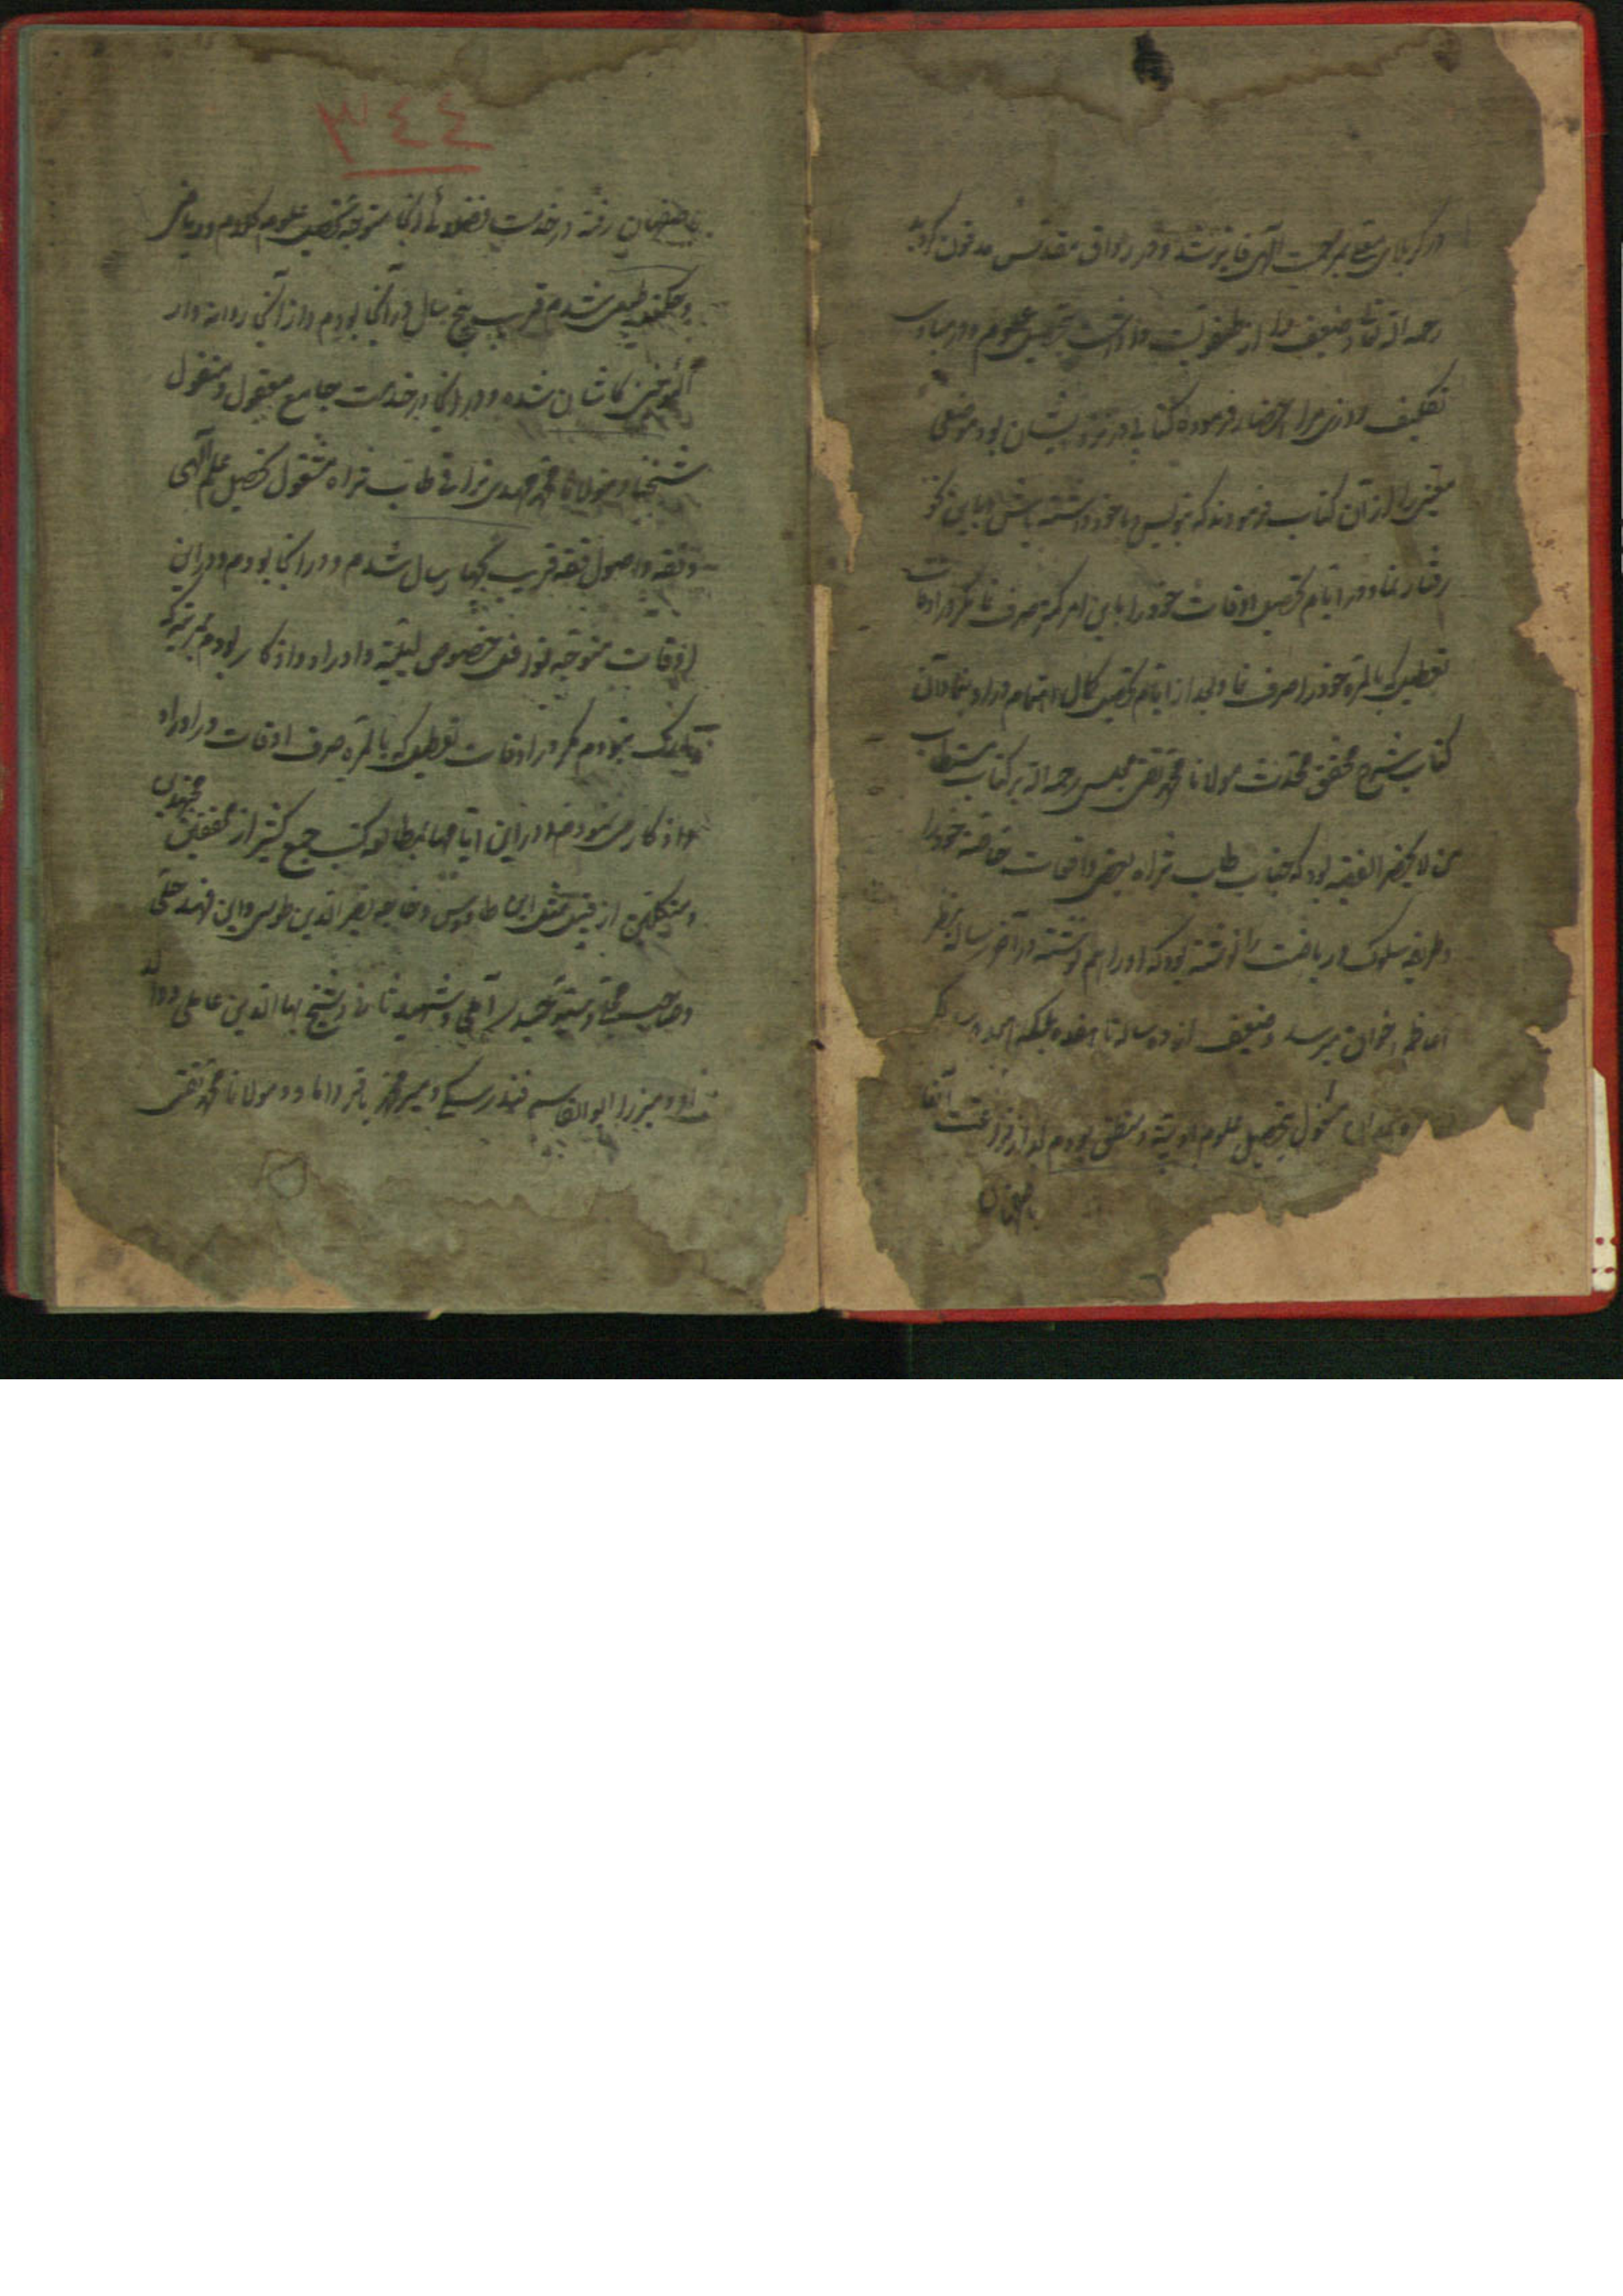 در کربلای معلی برحمت الهی فایز شد و در رواق مقدس مدفون گردید
رحمه الله تعالی و ضعیف را از طفولیت واداشت بتحصیل علوم و در مبادی
تکلیف روزی مرا احضار فرموده کتابی در نزد ایشان بود موضعی
معینی را از آن کتاب فرمودند که بنویس و با خود داشته باش و باین نحو
رفتار نما و در ایام تحصیل اوقات خود را باین امر کمتر صرف نما مگر در اوقات
تعطیل که بالمره خود را صرف نما و بعد از ایام تحصیل کمال اهتمام در او بنما و آن
کتاب شرح محقق محدث مولانا محمد تقی مجلسی رحمه الله بر کتاب مستطاب
من لا یحضر الفقیه بود که جناب طاب ثراه بعضی واقعات خاصه خود را
و طریقه سلوک و ریاضت را نوشته بود که او را هم نوشته در آخر رساله بنظر
اخوان میرسد و ضعیف از ده سالگی تا هفده بلکه هیجده سالگی
مشغول بتحصیل علوم ادبیه و منطق بودم بعد از فراغت از آنها
باصفهان
۳٤٤
باصفهان رفته در خدمت فضلای آنجا متوجه تحصیل علوم کلام و ریاضی
و حکمت طبیعی شدم قریب پنج سال در آنجا بودم و از آنجا روانه دار
المؤمنین کاشان شده و در آنجا در خدمت جامع معقول و منقول
شیخنا و مولانا محمد مهدی نراقی طاب ثراه مشغول تحصیل علم الهی
و فقه و اصول فقه قریب چهار سال شدم و در آنجا بودم و در این
اوقات متوجه نوافل خصوص لیلیه و اوراد و اذکار بودم
نبودم مگر در اوقات تعطیل که بالمره صرف اوقات در اوراد
و اذکار می نمودم و در این ایامها بمطالعه کتب جمع کثیر از محققین مجتهدین
و متکلمین از قبیل ابن طاوس و خاجه نصیر الدین طوسی و ابن فهد حلی
و صاحب و سید حیدر آملی و شهید ثانی و شیخ بهاء الدین عاملی و والد
او و میرزا ابو القاسم فندرسکی و میر محمد باقر داماد و مولانا محمد تقی